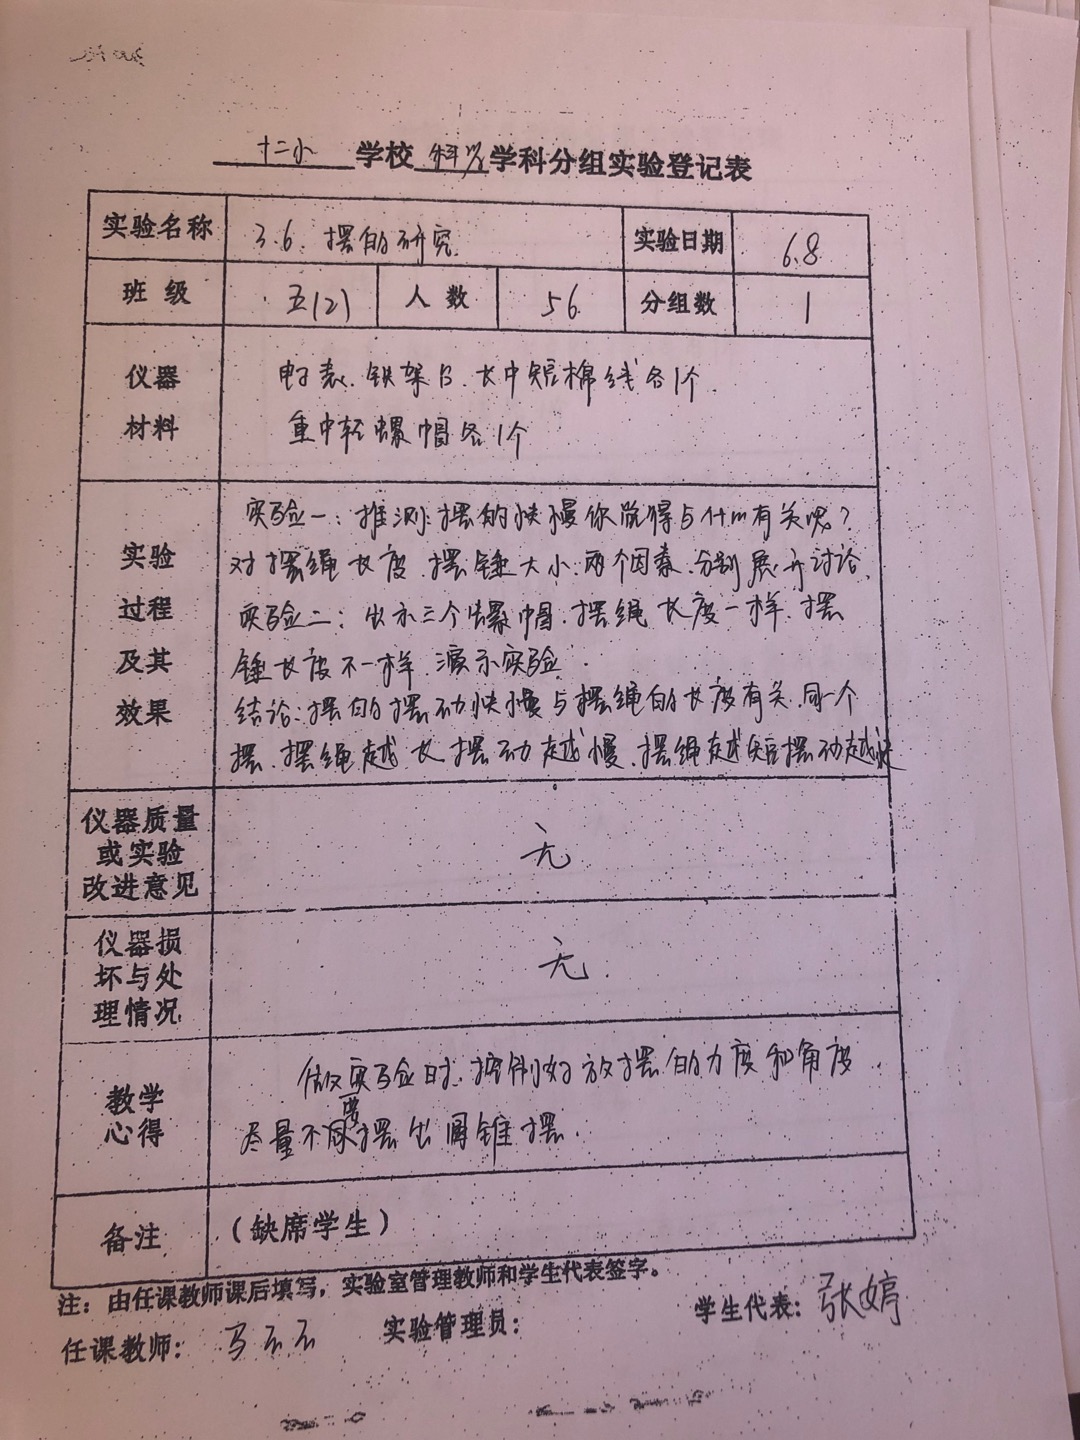 十二小 学校 科学 学科分组实验登记表
实验名称 3.6. 摆的研究 实验日期 6.8
班级 五(2) 人数 56 分组数 1
仪器 材料
电子表、铁架台、长中短棉线各1个
重中轻螺帽各1个
实验 过程 及其 效果
实验一:推测:摆的快慢你觉得与什么有关呢?
对摆绳长度、摆锤大小:两个因素、分别展开讨论.
实验二:出示三个螺帽.摆绳长度一样.摆
锤长度不一样.演示实验.
结论:摆的摆动快慢与摆绳的长度有关.同一个
摆.摆绳越长摆动越慢.摆绳越短摆动越快
仪器质量
或实验
改进意见
无
仪器损
坏与处
理情况
无.
教学
心得
做实验时.控制好放摆的力度和角度
尽量不要摆出圆锥摆.
备注 (缺席学生)
注:由任课教师课后填写,实验室管理教师和学生代表签字。
任课教师: 实验管理员: 学生代表:张婷